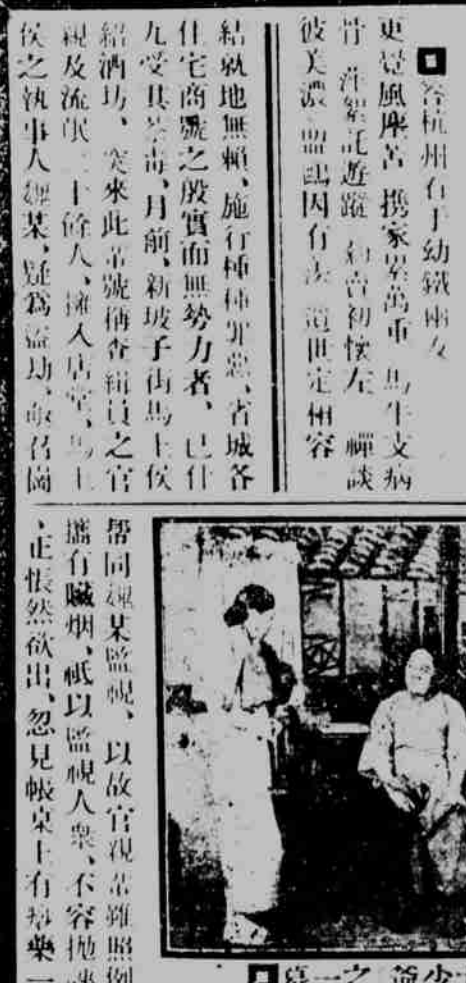 答杭州右手幼鐵兩友
更覺風塵苦 携家累萬重 馬牛支病
骨 萍絮託遊蹤 約言初懷左 禪談
彼美濃 盟鷗因有 遁世定相容
結就地無賴、施行種種罪惡、省城各
住宅商號之殷實而無勢力者、已什
九受其荼毒、月前、新坡子街馬上侯
紹酒坊、突來此輩號稱查緝員之官
親及流氓二十餘人、擁入店堂、馬上
侯之執事人魏某、疑為盜劫、故召崗
帮同魏某監視、以故官視輩雖照例
攜有贓烟、祗以監視人衆、不容拋
、正悵然欲出、忽見帳桌上有藥一
爺少
之一幕